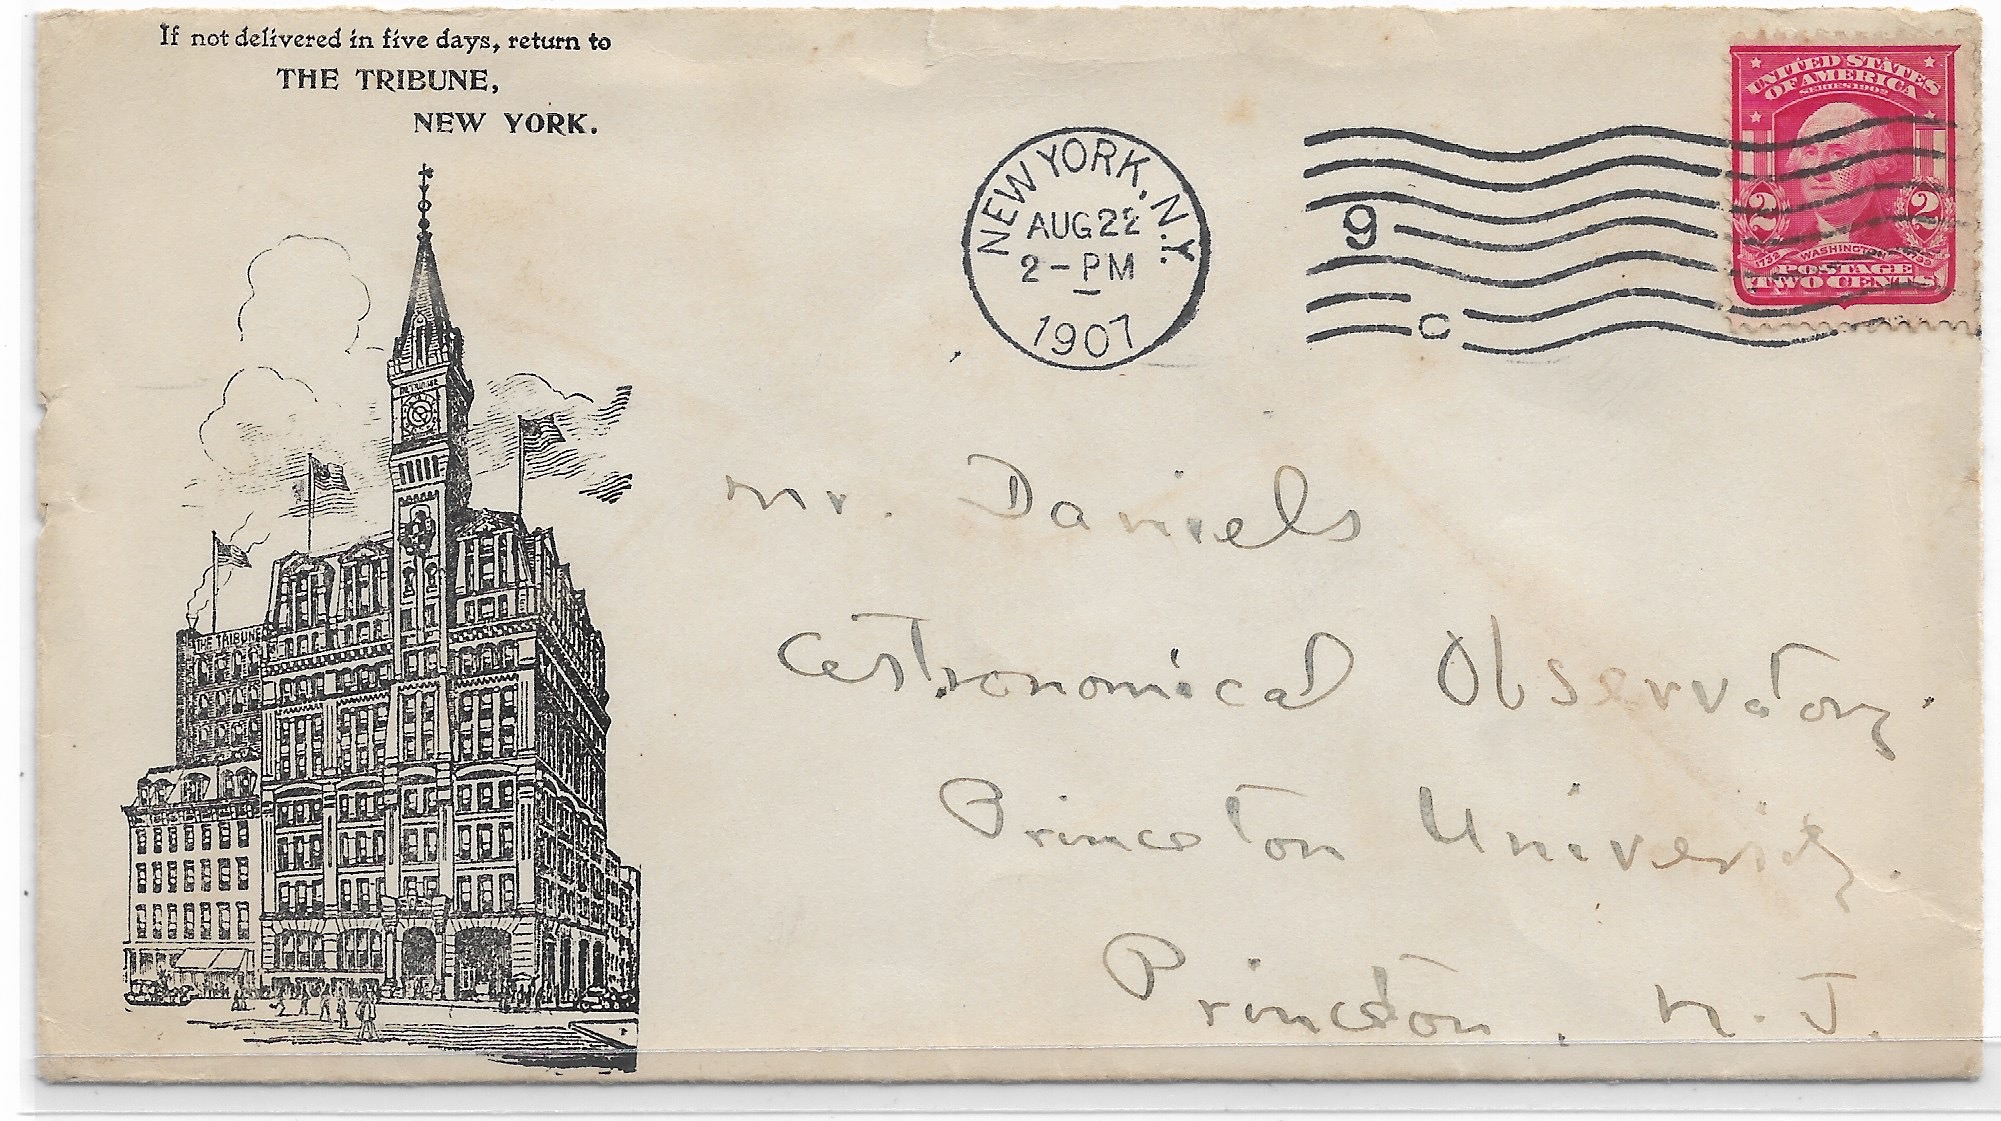 If not delivered in five days, return to
THE TRIBUNE,
NEW YORK.
NEW YORK, N.Y.
AUG 22
2-PM
1907
9
C
UNITED STATES
OF AMERICA
SERIES 1902
2 2
1732 WASHINGTON 1799
POSTAGE
TWO CENTS
THE TRIBUNE
Mr. Daniels
Astronomical Observatory.
Princeton University.
Princeton, N. J.